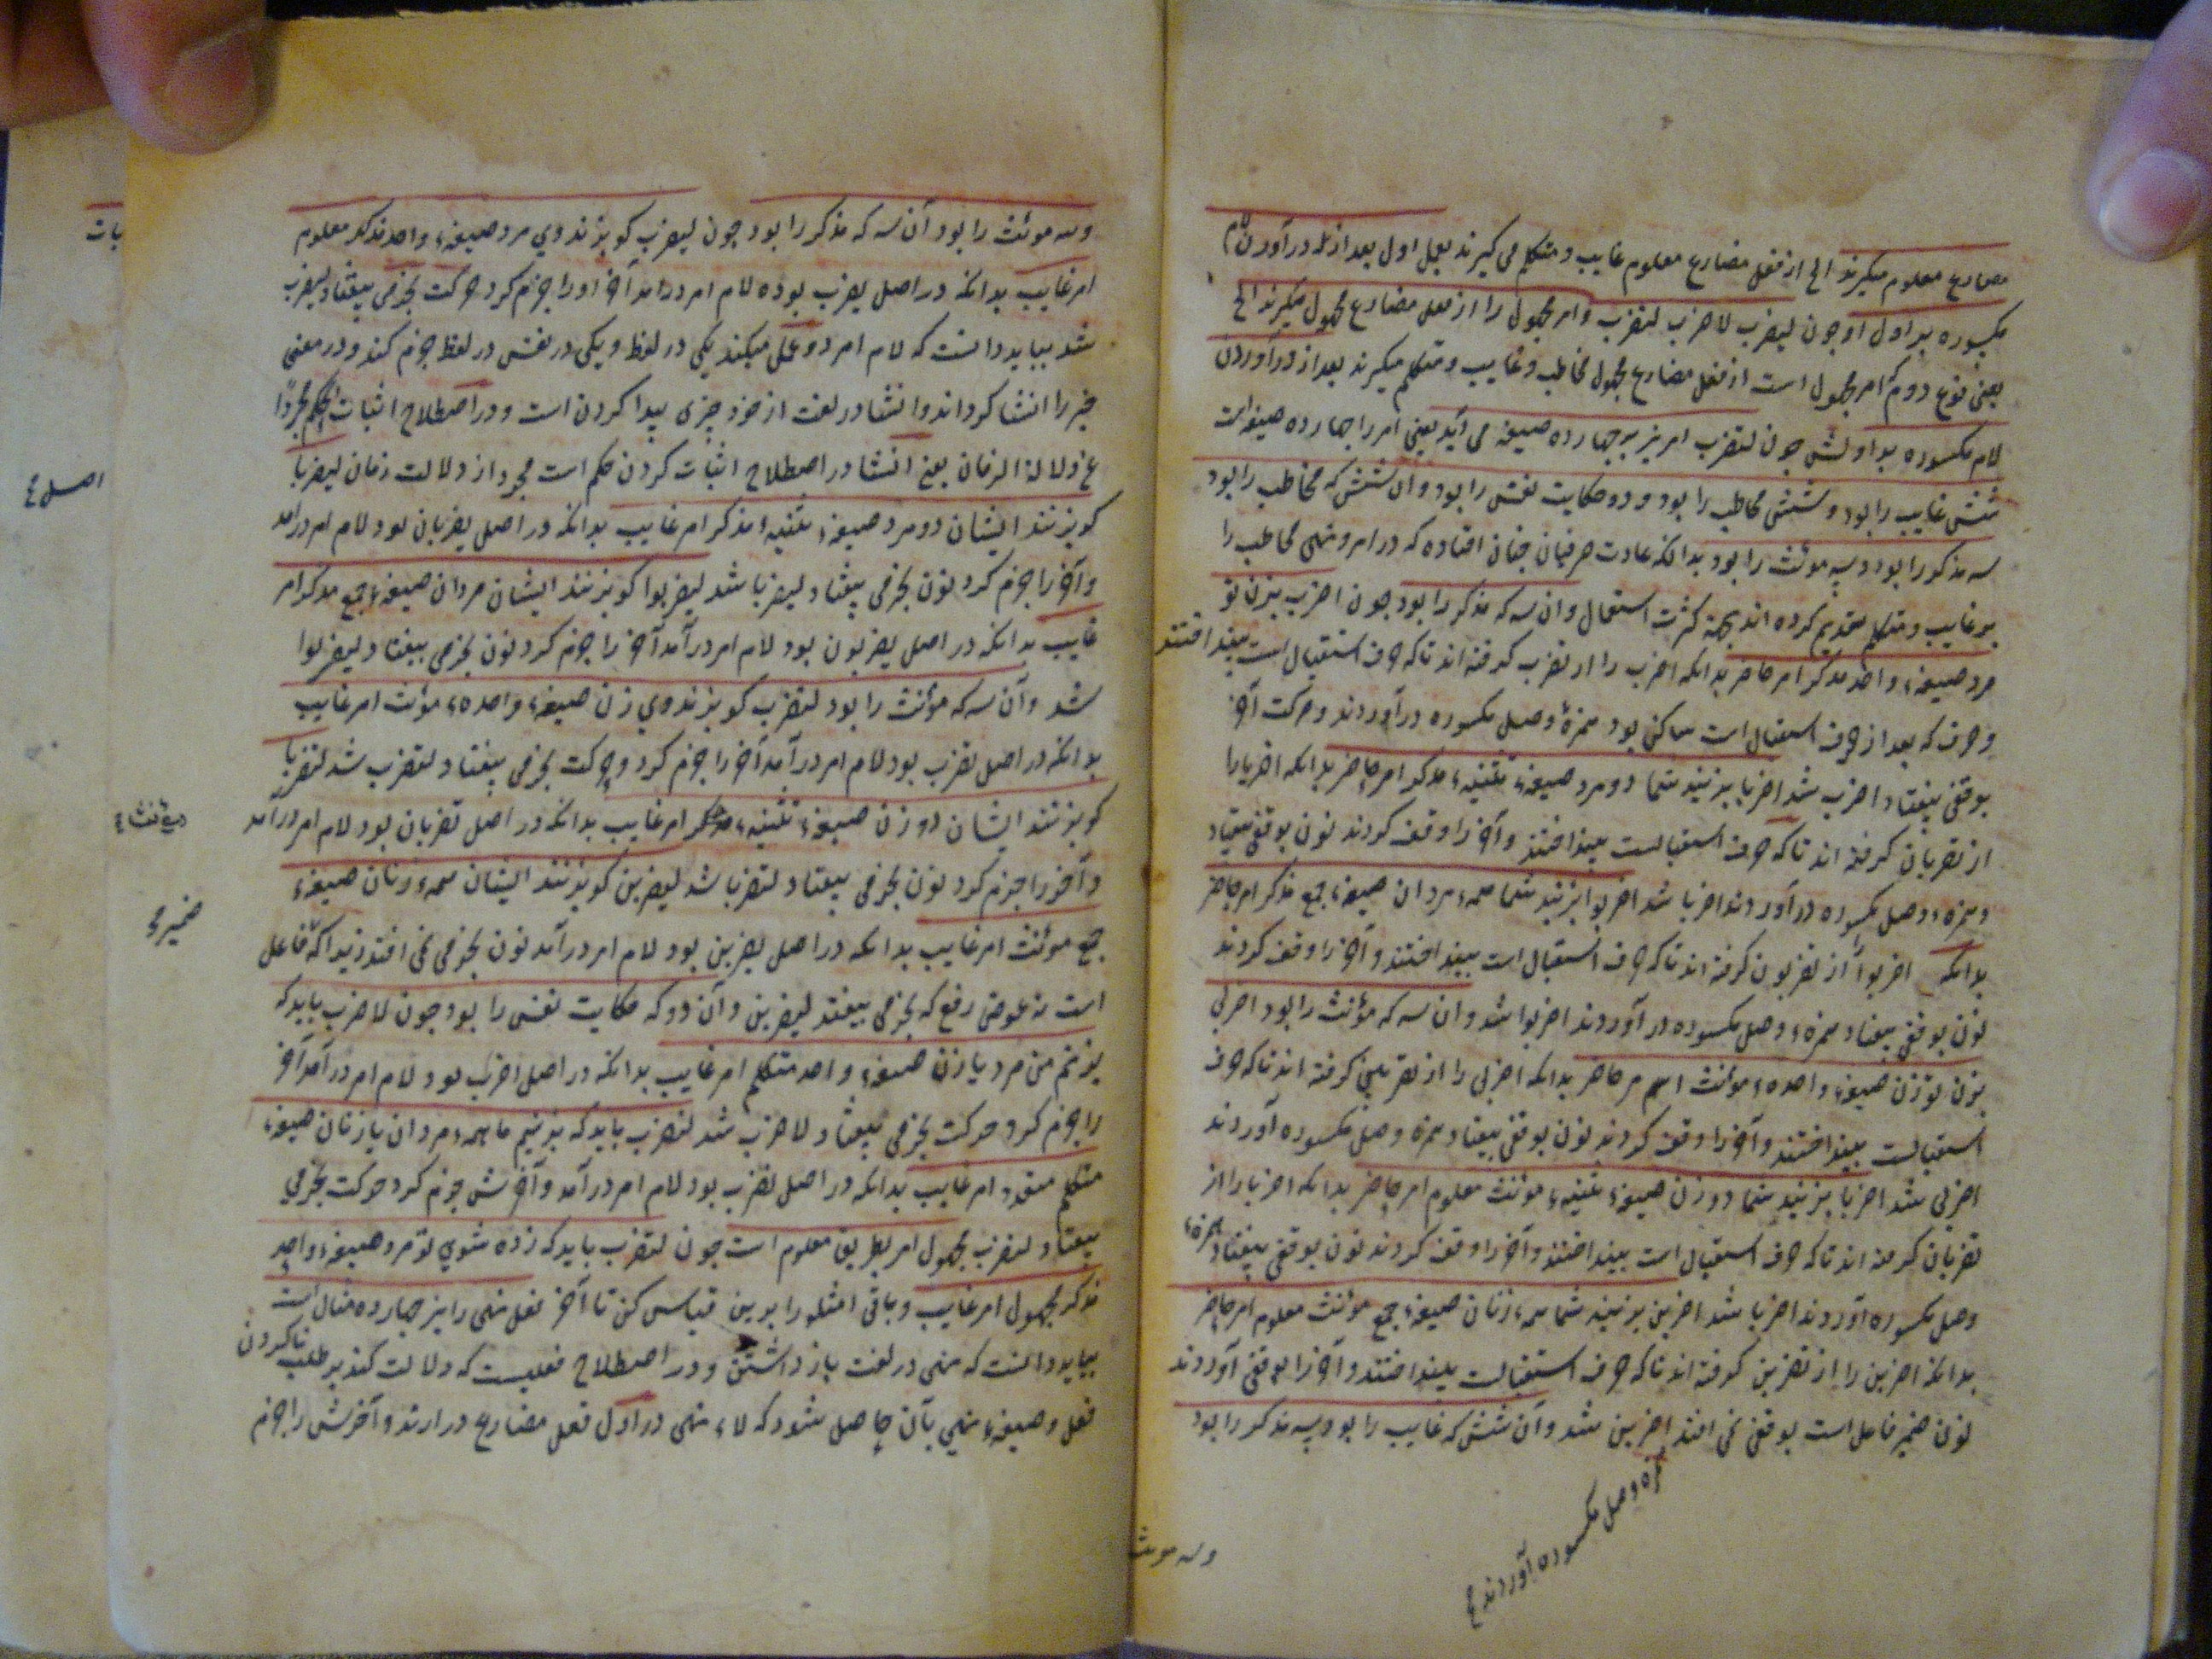 مضارع معلوم میکیرند الخ از فعل مضارع معلوم غایب و متکلم می کیرند بعمل اول بعد از در آوردن لام
مکسوره بر اول او چون لیضرب لاضرب لنضرب و امر مجهول را از فعل مضارع مجهول میکیرند الخ
یعنی نوع دوم امر مجهول است از فعل مضارع مجهول مخاطب و غایب و متکلم میکیرند بعد از در آوردن
لام مکسوره بر اولش چون لتضرب امر نیز بر چهارده صیغه می آید یعنی امر را چهارده صیغه است
شش غایب را بود و شش مخاطب را بود و دو حکایت نفس را بود و آن شش که مخاطب را بود
سه مذکر را بود و سه موئث را بود بدانکه عادت صرفیان چنان افتاده که در امر و نهی مخاطب را
بر غایب و متکلم تقدیم کرده اند بجهة کثرت استعمال و آن سه که مذکر را بود چون اضرب بزن تو
مرد صیغهٔ واحد مذکر امر حاضر بدانکه اضرب را از تضرب کرفته اند تا که حرف استقبال است بینداختند
و حرف که بعد از حرف استقبال است ساکن بود همزهٔ وصل مکسوره در آوردند و حرکت آخر
بوقفی بیفتاد اضرب شد اضربا بزنید شما دو مرد صیغهٔ تثنیهٔ مذکر امر حاضر بدانکه اضربا را
از تضربان کرفته اند تا که حرف استقبالست بینداختند و آخر را وقف کردند نون بوقفی بیفتاد
و همزهٔ وصل مکسوره در آوردند اضربا شد اضربوا بزنید شما همهٔ مردان صیغهٔ جمع مذکر امر حاضر
بدانکه اضربوا از تضربون کرفته اند تا که حرف استقبال است بینداختند و آخر را وقف کردند
نون بوقفی بیفتاد همزهٔ وصل مکسوره در آوردند اضربوا شد و آن سه که مؤنث را بود اضربی
بزن تو زن صیغهٔ واحدهٔ موئنث امر حاضر بدانکه اضربی را از تضربین کرفته اند تا که حرف
استقبالست بینداختند و آخر را وقف کردند نون بوقفی بیفتاد همزه وصل مکسوره آوردند
اضربی شد اضربا بزنید شما دو زن صیغهٔ تثنیهٔ موئنث معلوم امر حاضر بدانکه اضربا را از
تضربان کرفته اند تا که حرف استقبال است بینداختند و آخر را وقف کردند نون بوقفی بیفتاد همزهٔ
وصل مکسوره آوردند اضربا شد اضربن بزنید شما همهٔ زنان صیغهٔ جمع موئنث معلوم امر حاضر
بدانکه اضربن را از تضربن کرفته اند تا که حرف استقبالست بینداختند و آخر را بوقفی آوردند
نون ضمیر فاعل است بوقفی نمی افتد اضربن شد و آن شش که غایب را بود سه مذکر را بود
همزه وصل مکسوره آوردند ع
و سه موئث
و سه موئنث را بود آن سه که مذکر را بود چون لیضرب کو بزند وی مرد صیغهٔ واحد مذکر معلوم
امر غایب بدانکه در اصل یضرب بوده لام امر در آمد آخر او را جزم کرد حرکت بجزمی بیفتاد لیضرب
شد بباید دانست که لام امر دو عمل میکند یکی در لفظ و یکی در نفس در لفظ جزم کند و در معنی
خبر را انشا کرداند و انشا در لغت از خود چیزی پیدا کردن است و در اصطلاح اثبات الحکم مجردا
عن دلالة الزمان یعنی انشا در اصطلاح اثبات کردن حکم است مجرد از دلالت زمان لیضربا
کو بزنند ایشان دو مرد صیغهٔ تثنیهٔ مذکر امر غایب بدانکه در اصل یضربان بود لام امر در آمد
و آخر را جزم کرد نون بجزمی بیفتاد لیضربا شد لیضربوا کو بزنند ایشان مردان صیغهٔ جمع مذکر امر
غایب بدانکه در اصل یضربون بود لام امر در آمد آخر را جزم کرد نون بجزمی بیفتاد لیضربوا
شد و آن سه که موئنث را بود لتضرب کو بزند وی زن صیغهٔ واحدهٔ موئنث امر غایب
بدانکه در اصل تضرب بود لام امر در آمد آخر را جزم کرد و حرکت بجزمی بیفتاد لتضرب شد لتضربا
کو بزنند ایشان دو زن صیغهٔ تثنیهٔ مذکر امر غایب بدانکه در اصل تضربان بود لام امر در آمد
و آخر را جزم کرد نون بجزمی بیفتاد لتضربا شد لیضربن کو بزنند ایشان همهٔ زنان صیغهٔ
جمع موئنث امر غایب بدانکه در اصل یضربن بود لام امر در آمد نون بجزمی نمی افتد زیرا که فاعل
است نه عوض رفع که بجزمی بیفتد لیضربن و آن دو که حکایت نفس را بود چون لاضرب باید که
بزنم من مرد یا زن صیغهٔ واحد متکلم امر غایب بدانکه در اصل اضرب بود لام امر در آمد آخر
را جزم کرد حرکت بجزمی بیفتاد لاضرب شد لنضرب باید که بزنیم ما همهٔ مردان یا زنان صیغهٔ
متکلم متعدد امر غایب بدانکه در اصل نضرب بود لام امر در آمد و آخرش جزم کرد حرکت بجزمی
بیفتاد لنضرب مجهول امر بطریق معلوم است چون لتضرب باید که زده شوی تو مرد صیغهٔ واحد
مذکر مجهول امر غایب و باقی امثله را برین قیاس کن تا آخر فعل نهی را نیز چهارده مثال است
بباید دانست که نهی در لغت باز داشتن و در اصطلاح فعلیست که دلالت کند بر طلب ناکردن
فعل و صیغهٔ نهی بآن حاصل شود که لاء نهی در اول فعل مضارع در آرند و آخرش را جزم
اصل ع
موئنث ع
ضمیر
بات